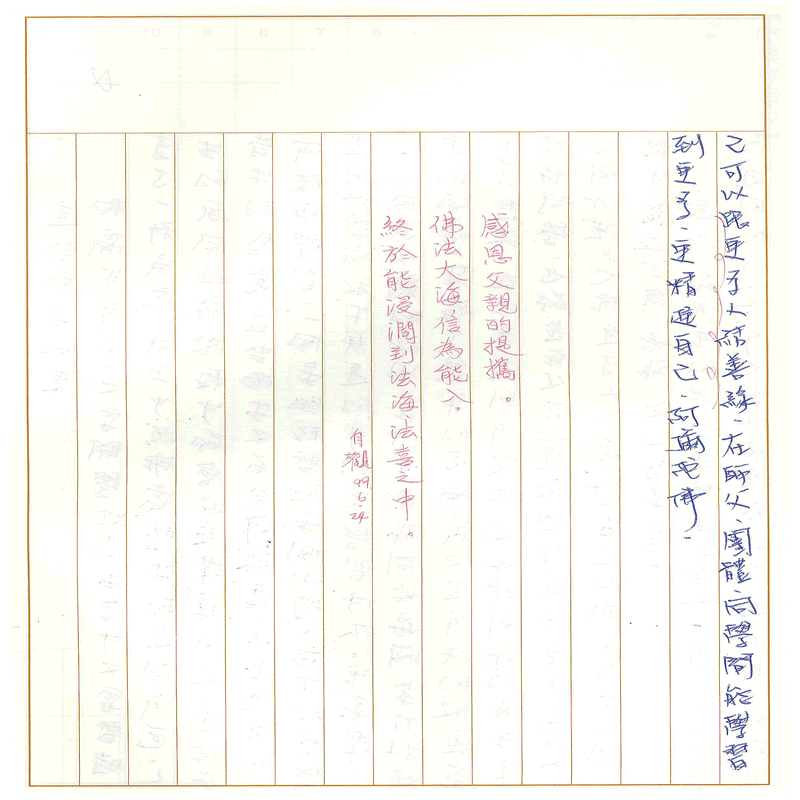 己可以跟更多人結善緣、在師父、團體、同學間能學習
到更多、更精進自己、阿彌陀佛、
感恩父親的提攜。
佛法大海信為能入。
終於能浸潤到法海、法喜之中。
自觀 99.6.24